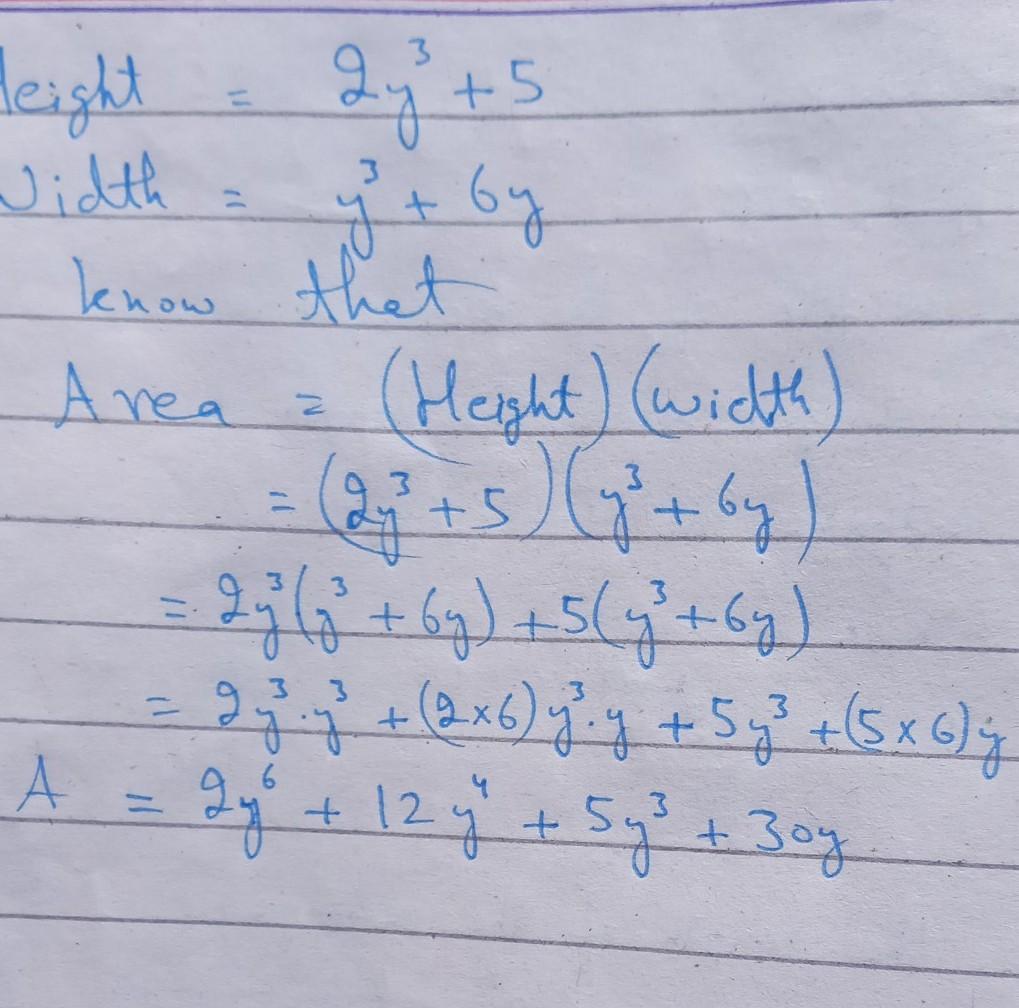 eight = 2y³ + 5
idth = y³ + 6y
know that
Area = (Height)(width)
= (2y³ + 5)(y³ + 6y)
= 2y³(y³ + 6y) + 5(y³ + 6y)
= 2y³.y³ + (2×6)y³.y + 5y³ + (5×6)y
A = 2y⁶ + 12y⁴ + 5y³ + 30y